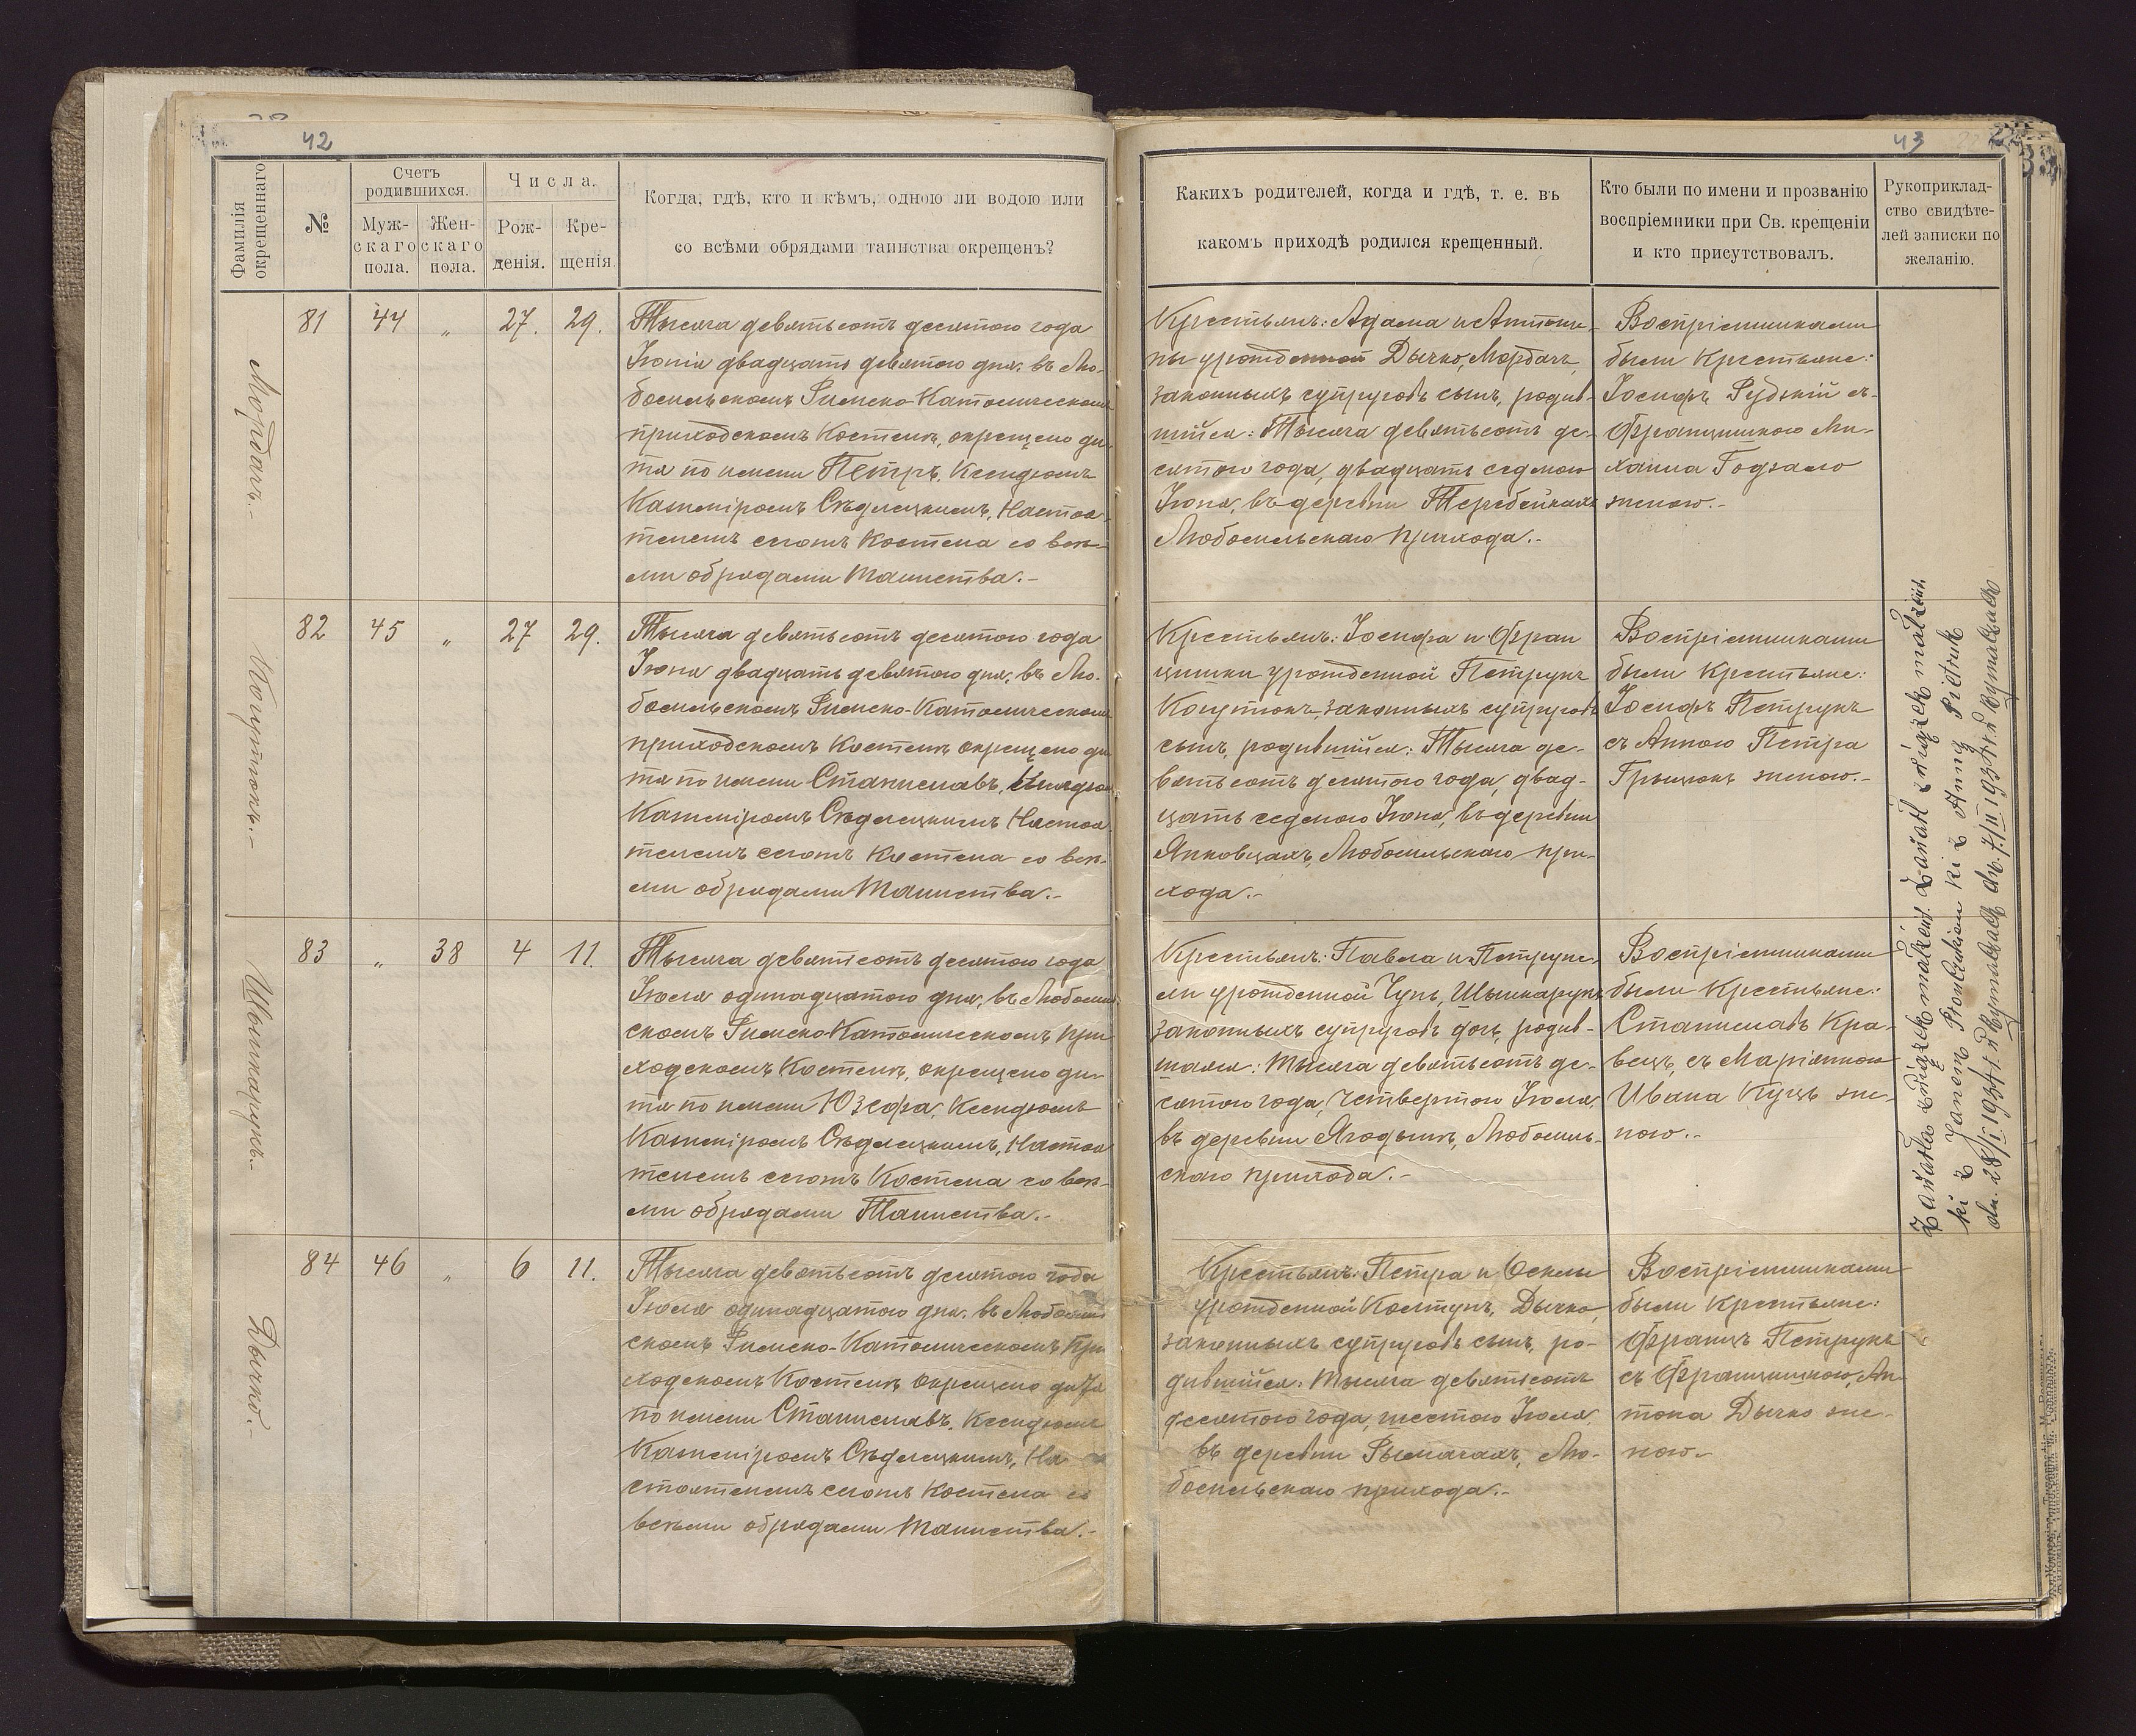 42
Фамилія окрещеннаго
№
Счетъ родившихся.
Муж-
скаго
пола.
Жен-
скаго
пола.
Числа.
Рож-
денія.
Кре-
щенія.
Когда, гдѣ, кто и кѣмъ, одною ли водою или
со всѣми обрядами таинства окрещенъ?
Мордачъ.-
81 44 „ 27. 29.
Тысяча девятьсотъ десятого года
Іюня двадцать девятого дня, въ Лю-
бомльскомъ Римско-Католическомъ
приходскомъ Костелѣ, окрещено ди-
тя по имени Петръ, Ксендзомъ
Казиміромъ Сѣдлецкимъ, Настоя-
телемъ сегожъ Костела со всѣ-
ми обрядами Таинства.-
Когутюкъ.-
82 45 „ 27 29.
Тысяча девятьсотъ десятого года
Іюня двадцать девятого дня, въ Лю-
бомльскомъ Римско-Католическомъ
приходскомъ Костелѣ окрещено ди
тя по имени Станиславъ, Ксендзом
Казиміромъ Сѣдлецкимъ Настоя
телемъ сегожъ Костела со всѣ-
ми обрядами Таинства.-
Шышкарукъ.-
83 „ 38 4 11.
Тысяча девятьсотъ десятого года
Іюля одинадцатого дня, въ Любомль
скомъ Римско-Католическомъ При
ходскомъ Костелѣ, окрещено ди-
тя по имени Юзефа, Ксендзомъ
Казиміромъ Сѣдлецкимъ, Настоя
телемъ сегожъ Костела со всѣ-
ми обрядами Таинства.-
Дычко.-
84 46 „ 6 11.
Тысяча девятьсотъ десятого года
Іюля одинадцатого дня, въ Любомль
скомъ Римско-Католическомъ При
ходскомъ Костелѣ окрещено дитя
по имени Станиславъ, Ксендзомъ
Казиміромъ Сѣдлецкимъ, На
стоятелемъ сегожъ Костела со
всѣми обрядами Таинства.-
43
Какихъ родителей, когда и гдѣ, т. е. въ
какомъ приходѣ родился крещенный.
Кто были по имени и прозванію
воспріемники при Св. крещеніи
и кто присутствовалъ.
Рукоприклад-
ство свидѣте-
лей записки по
желанію.
Крестьянъ: Адама и Антони-
ны урожденной Дычко, Мордачъ,
законныхъ супруговъ сынъ, родив-
шійся: Тысяча девятьсотъ де-
сятого года, двадцать седмого
Іюня, въ деревни Теребейкахъ
Любомльскаго прихода.-
Воспріемниками
были Крестьяне:
Іосифъ Рудзкій съ
Францишкою Ми-
хаила Годзало
женою.-
Крестьянъ: Іосифа и Фран
цишки урожденной Петрукъ
Когутюкъ, законныхъ супруговъ
сынъ, родившійся: Тысяча де-
вятьсотъ десятого года, двад-
цать седмого Іюня, въ деревни
Янковцахъ, Любомльскаго при-
хода.-
Воспріемниками
были Крестьяне:
Іосифъ Петрукъ
съ Анною Петра
Грыцюкъ женою.-
Крестьянъ: Павла и Петрунe-
ли урожденной Чунь, Шышкарукъ
законныхъ супруговъ дочь, родив-
шаяся: Тысяча девятьсотъ де-
сятого года, Четвертого Іюля,
въ деревни Ягодынѣ, Любомль-
скаго прихода.-
Воспріемниками
были Крестьяне:
Станиславъ Кра-
вецъ, съ Маріянною
Ивана Куцъ же-
ною.-
Крестьянъ: Петра и Феклы
урожденной Костукъ, Дычко,
законныхъ супруговъ сынъ, ро-
дившійся: Тысяча девятьсотъ
десятого года, шестого Іюля,
въ деревни Рымачахъ, Лю-
бомльскаго прихода.-
Воспріемниками
были Крестьяне:
Францъ Петрукъ
съ Францишкою, Ан-
тона Дычко же-
ною.-
Zawarła związek małżeńs. Zawarł związek małżeńs.
ki z Janem ki z Anną Pietruk
dn. 28/I 1934 r. w Rymaczach dn. 7/II 193 r. w Rymaczach